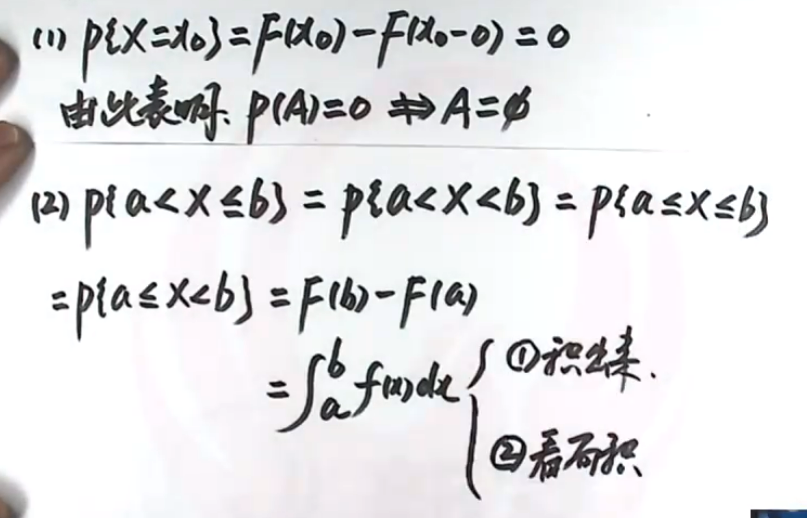 (1) P{X=x₀}=F(x₀)-F(x₀-0)=0
由此表明、P(A)=0 ⇏ A=∅
(2) P{a<X≤b} = P{a<X<b} = P{a≤X≤b}
=P{a≤X<b} = F(b)-F(a)
=∫ₐᵇ f(x)dx { ①积出来.
②看面积